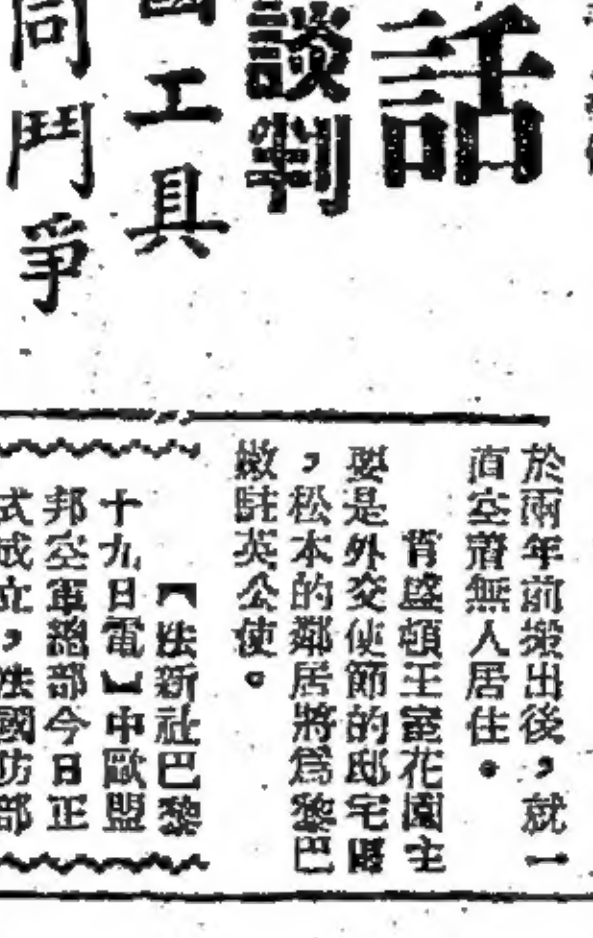 話
談判
國工具
同鬥爭
於兩年前搬出後，就一
直空着無人居住。
肯盛頓王室花園主
要是外交使節的邸宅區
，松本的鄰居將爲黎巴
嫩駐英公使。
【法新社巴黎
十九日電】中歐盟
邦空軍總部今日正
式成立，法國防部